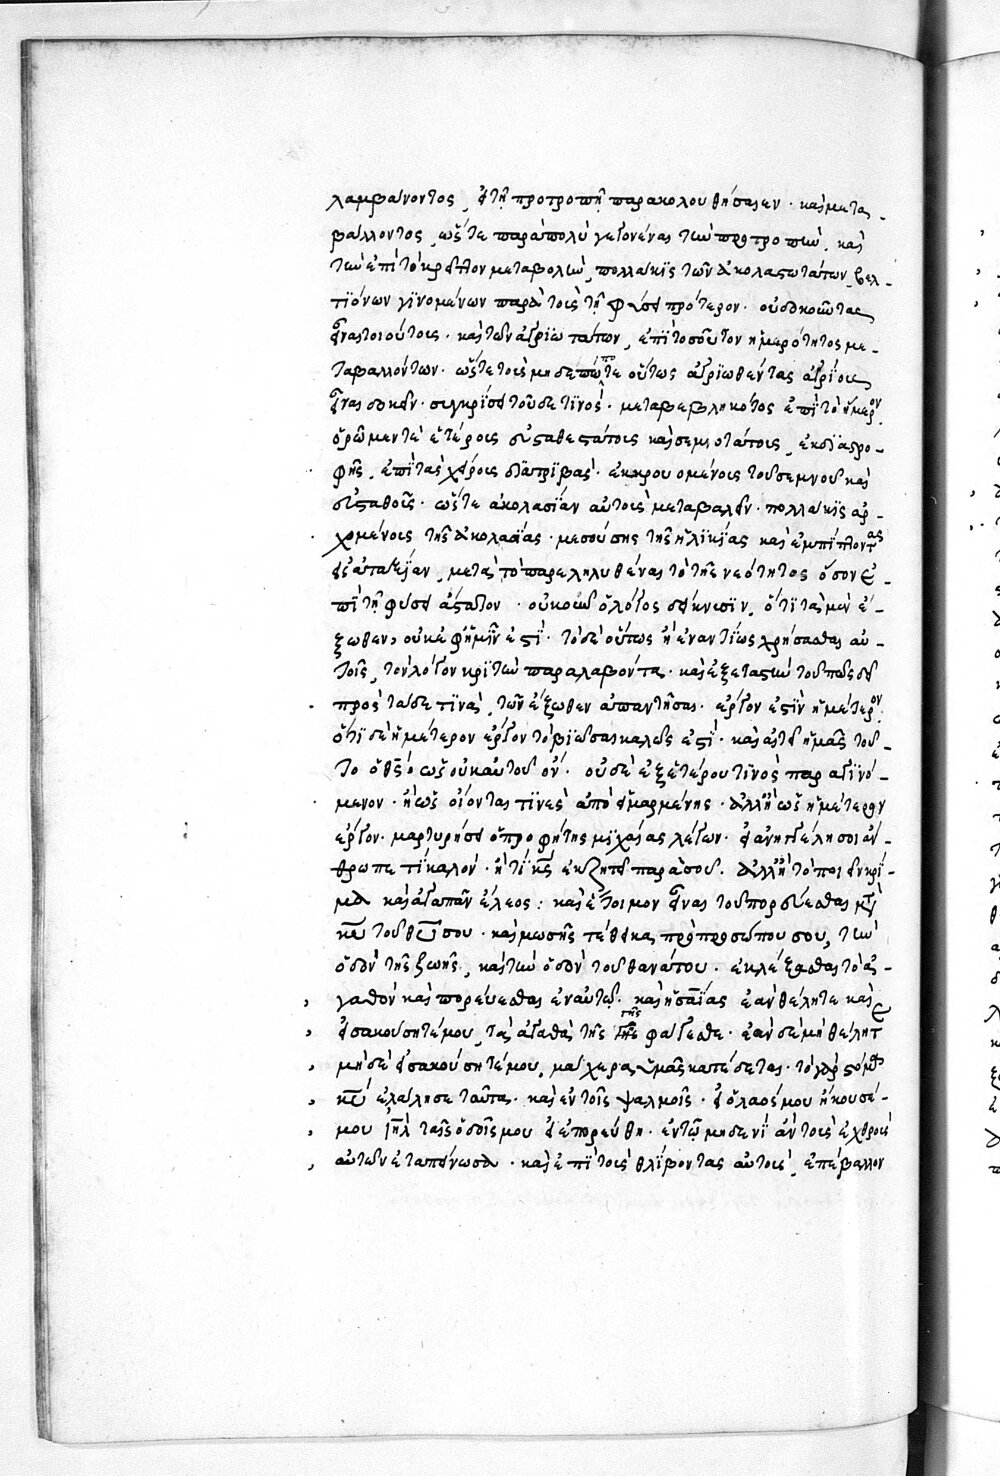 λαμβάνοντος, ἢ τῇ προτροπῇ παρακολουθήσαιεν · καὶ μετα-
βάλλοντος, ὥστε παραπολὺ γεγονέναι τὴν προτροπὴν, καὶ
τὴν ἐπὶ τὸ κρεῖττον μεταβολὴν, πολλάκις τῶν ἀκολαστωτάτων, βελ-
τιόνων γινομένων παρὰ τοὺς τῇ φύσει πρότερον · οὐ δοκοῦντας
εἶναι τοιούτοις · καὶ τῶν ἀγριωτάτων, ἐπὶ τοσοῦτον ἡμερότητος με-
ταβαλλόντων · ὥστε τοὺς μηδεπώποτε οὕτως ἀγριωθέντας ἀγρίους
εἶναι δοκεῖν · συγκρίσει τοῦ δέ τινος · μεταβεβληκότος ἐπὶ τὸ ἥμερον,
ὁρῶμέν τε ἑτέρους εὐσταθεστάτους καὶ σεμνοτάτους, ἐκ διαστρο-
φῆς, ἐπὶ τὰς χείρους διατριβὰς · ἐκκρουομένους τοῦ σεμνοῦ καὶ
εὐσταθοῦς · ὥστε ἀκολασίαν αὐτοὺς μεταβαλεῖν · πολλάκις ἀρ-
χομένους τῆς ἀκολασίας · μεσούσης τῆς ἡλικίας καὶ ἐμπίπτοντας
εἰς ἀταξίαν, μετὰ τὸ παρεληλυθέναι τὸ τῆς νεότητος ὅσον ἐ-
πὶ τῇ φύσει ἄστατον · οὐκοῦν ὁ λόγος δείκνυσιν, ὅτι τὰ μὲν ἔ-
ξωθεν, οὐκ ἐφ' ἡμῖν ἐστὶ · τὸ δὲ οὕτως ἢ ἐναντίως χρήσασθαι αὐ-
τοῖς, τὸν λόγον κριτὴν παραλαβόντα · καὶ ἐξεταστὴν τοῦ πῶς δεῖ
πρὸς τάδε τινὰ, τῶν ἔξωθεν ἀπαντῆσαι · ἔργον ἐστὶν ἡμέτερον,
ὅτι δὲ ἡμέτερον ἔργον τὸ βιῶσαι καλῶς ἐστὶ · καὶ αἰτεῖ ἡμᾶς τοῦ-
το ὁ θ̅ς̅ ὡς οὐκ αὐτοῦ ὂν · οὐδὲ ἐξ ἑτέρου τινὸς παραγινό-
μενον · ἢ ὡς οἴονταί τινες ἀπὸ εἱμαρμένης · ἀλλ' ἢ ὡς ἡμέτερον
ἔργον · μαρτυρήσει ὁ προφήτης μιχαίας λέγων · εἰ ἀνηγγέλη σοι ἄν-
θρωπε τί καλὸν · ἢ τί κ̅ς̅ ἐκζητεῖ παρὰ σοῦ · ἀλλ' ἢ τὸ ποιεῖν κρί-
μα καὶ ἀγαπᾶν ἔλεος : καὶ ἕτοιμον εἶναι τοῦ πορεύεσθαι μετὰ
κ̅υ̅ τοῦ θ̅υ̅ σου · καὶ μωσῆς τέθεικα, πρὸ προσώπου σου, τὴν
ὁδὸν τῆς ζωῆς, καὶ τὴν ὁδὸν τοῦ θανάτου · ἐκλέξασθαι τὸ ἀ-
γαθὸν καὶ πορεύεσθαι ἐν αὐτῷ · καὶ ἡσαΐας ἐὰν θέλητε καὶ
εἰσακούσητέ μου, τὰ ἀγαθὰ τῆς γῆς φάγεσθε · ἐὰν δὲ μὴ θέλητε
μηδὲ εἰσακούσητέ μου, μάχαιρα ὑμᾶς κατέδεται · τὸ γὰρ στόμα
κ̅υ̅ ἐλάλησε ταῦτα · καὶ ἐν τοῖς ψαλμοῖς · εἰ ὁ λαός μου ἤκουσέ-
μου ἰ̅η̅λ̅ ταῖς ὁδοῖς μου εἰ ἐπορεύθη · ἐν τῷ μηδενὶ ἂν τοὺς ἐχθροὺς
αὐτῶν ἐταπείνωσα · καὶ ἐπὶ τοὺς θλίβοντας αὐτοὺς, ἐπέβαλλον